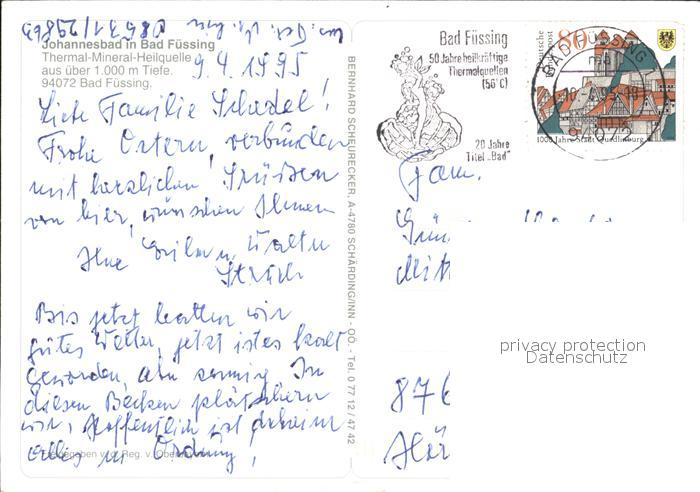 08531/29869
Johannesbad in Bad Füssing
Thermal-Mineral-Heilquelle
aus über 1.000 m Tiefe.
94072 Bad Füssing.
9.4.1995
Liebe Familie Schedel!
Frohe Ostern, verbunden
mit herzlichen Grüßen
von hier, wünschen Ihnen
Ihre Walter
Bis jetzt hatten wir
gutes Wetter, jetzt ist es kalt
geworden, aber sonnig. In
diesen Becken plätschern
wir, Hoffentlich ist daheim
alles in Ordnung!
Freigegeben v. d. Reg. v.
BERNHARD SCHEURECKER, A-4780 SCHÄRDING/INN - OÖ. - Tel. 0 77 12 / 47 42
Bad Füssing
50 Jahre heilkräftige
Thermalquellen
(56°C)
20 Jahre
Titel „Bad"
Deutsche Bundespost
80
BAD FÜSSING
94072
1000 Jahre Stadt Quedlinburg
Fam.
Gün
Mitt
876
Hör
privacy protection
Datenschutz